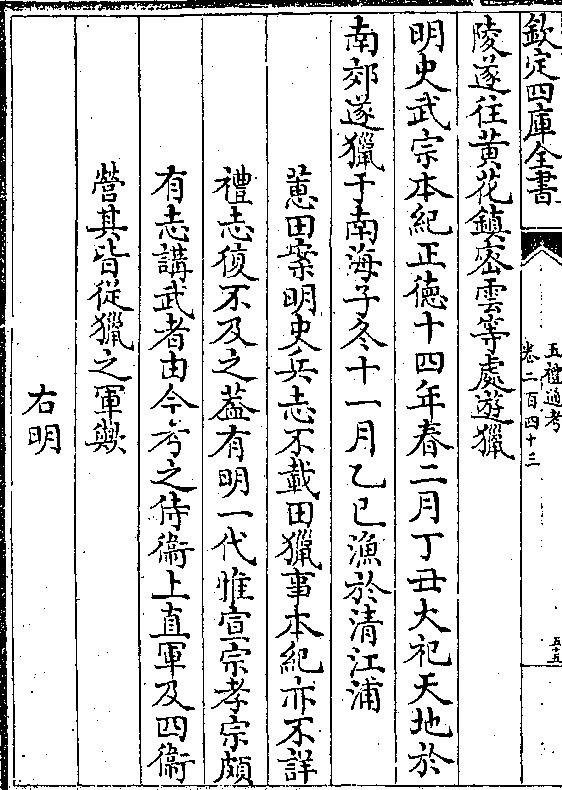 欽定四庫全書
五禮通考
卷二百四十三
五十五
陵遂往黃花鎮密雲等處遊獵
明史武宗本紀正德十四年春二月丁丑大祀天地於
南郊遂獵于南海子冬十一月乙巳漁於清江浦
蕙田案明史兵志不載田獵事本紀亦不詳
禮志復不及之葢有明一代惟宣宗孝宗頗
有志講武者由今考之侍衞上直軍及四衞
營其皆從獵之軍歟
右明